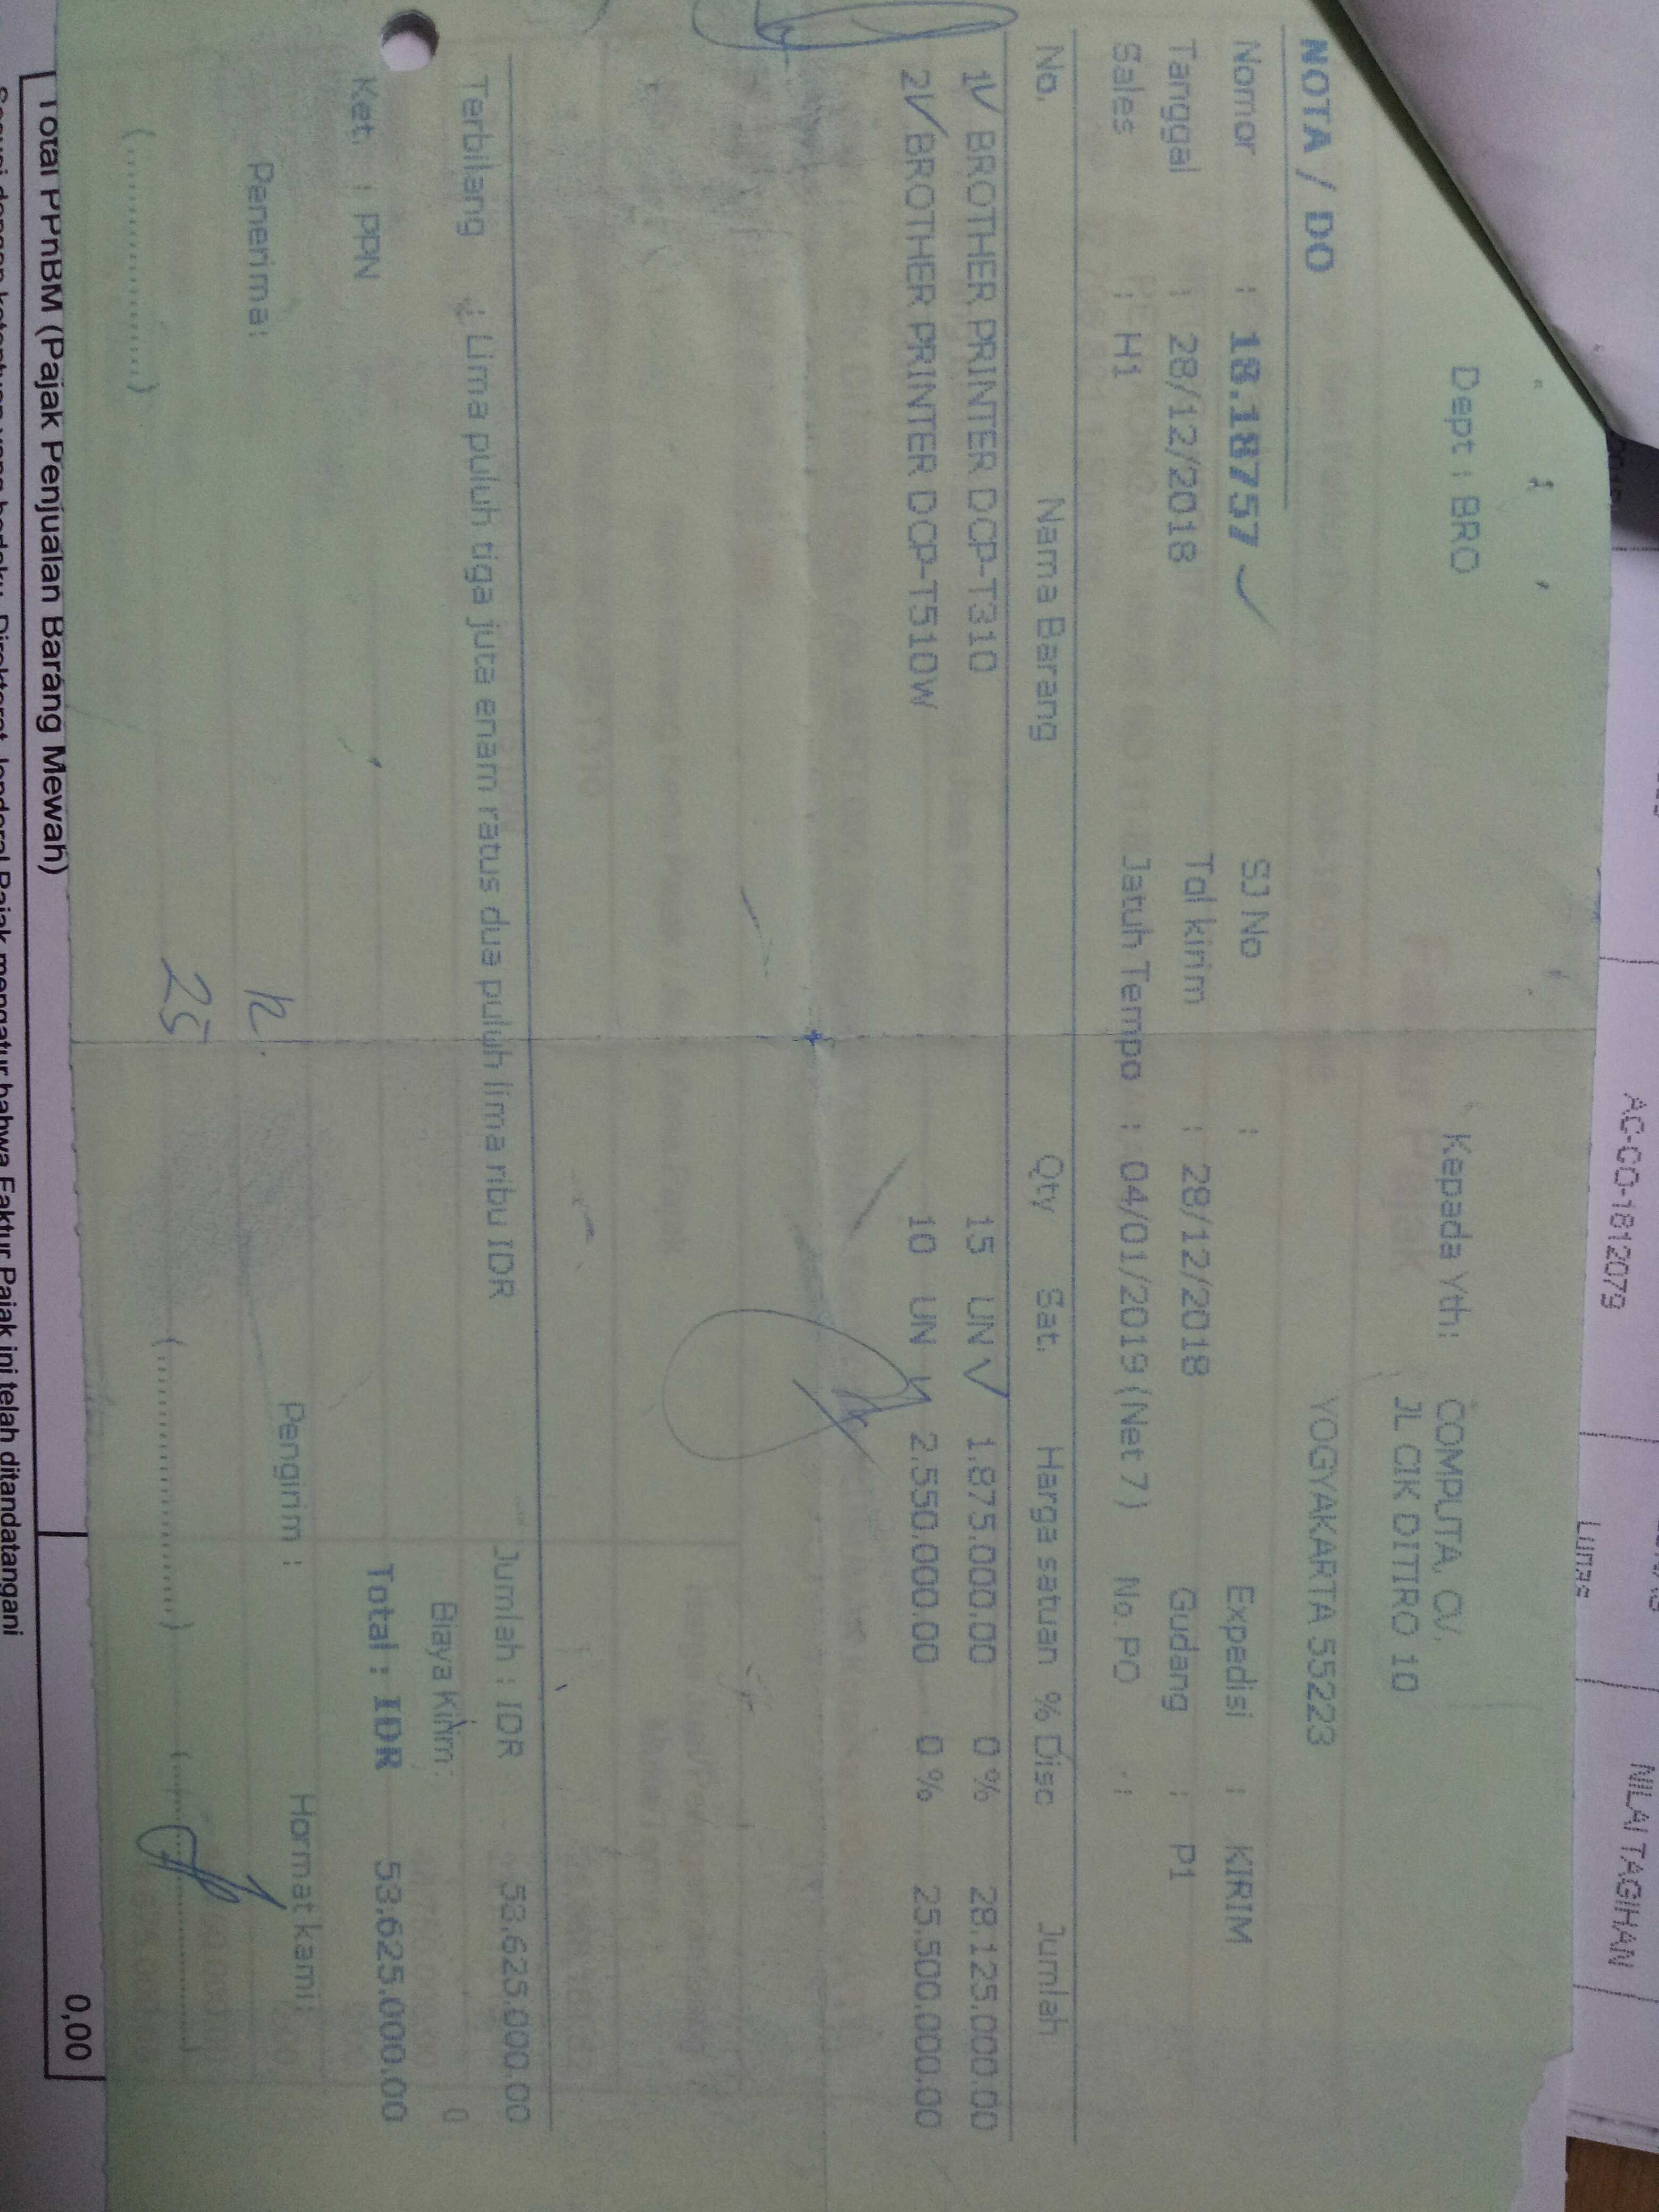 AC-CO-1812079
NILAI TAGIHAN
Lunas
Dept : BRO
Kepada Yth: COMPUTA, CV.
JL CIK DITIRO 10
NOTA / DO
YOGYAKARTA 55223
Nomor : 18.18757 SJ No : Expedisi : KIRIM
Tanggal : 28/12/2018 Tgl kirim : 28/12/2018 Gudang : P1
Sales : H1 Jatuh Tempo : 04/01/2019 (Net 7) No. PO :
No. Nama Barang Qty Sat. Harga satuan % Disc Jumlah
1 BROTHER PRINTER DCP-T310 15 UN 1.875.000.00 0 % 28.125.000.00
2 BROTHER PRINTER DCP-T510W 10 UN 2.550.000.00 0 % 25.500.000.00
Terbilang : Lima puluh tiga juta enam ratus dua puluh lima ribu IDR Jumlah : IDR 53.625.000.00
Biaya Kirim: 0
Ket. : PPN Total : IDR 53.625.000.00
Penerima: Pengirim : Hormat kami:
25
(..............) (..............) (..............)
Total PPnBM (Pajak Penjualan Barang Mewah) 0,00
Sesuai dengan ketentuan yang berlaku, Direktorat Jenderal Pajak mengatur bahwa Faktur Pajak ini telah ditandatangani